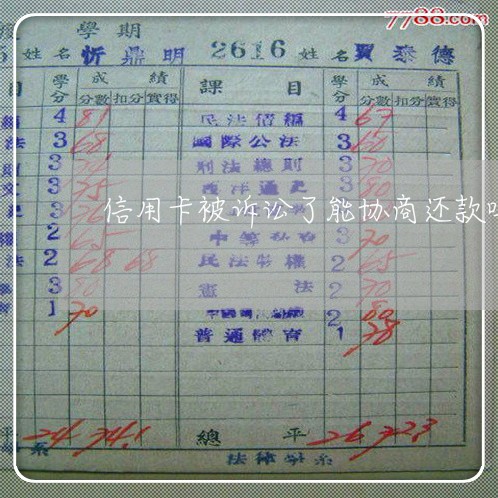 7788.com
學期
姓名 忻鼎明 2616 姓名 賈泰德
目 學分 成績 課目 學分 成績
分數 扣分 實得 分數 扣分 實得
4 81 民法債編 4 67
法 3 68 國際公法 3 60
3 刑法總則 3 70
3 75 西洋通史 3 80
信用卡被诉讼了能协商还款吗
2 65 3 70
法 2 68 68 民法物權 2 65
3 80 憲法 2 70
1 70 2 80
普通體育 1 78
平 24 74.1 總平 26 72.3
系 法律學系